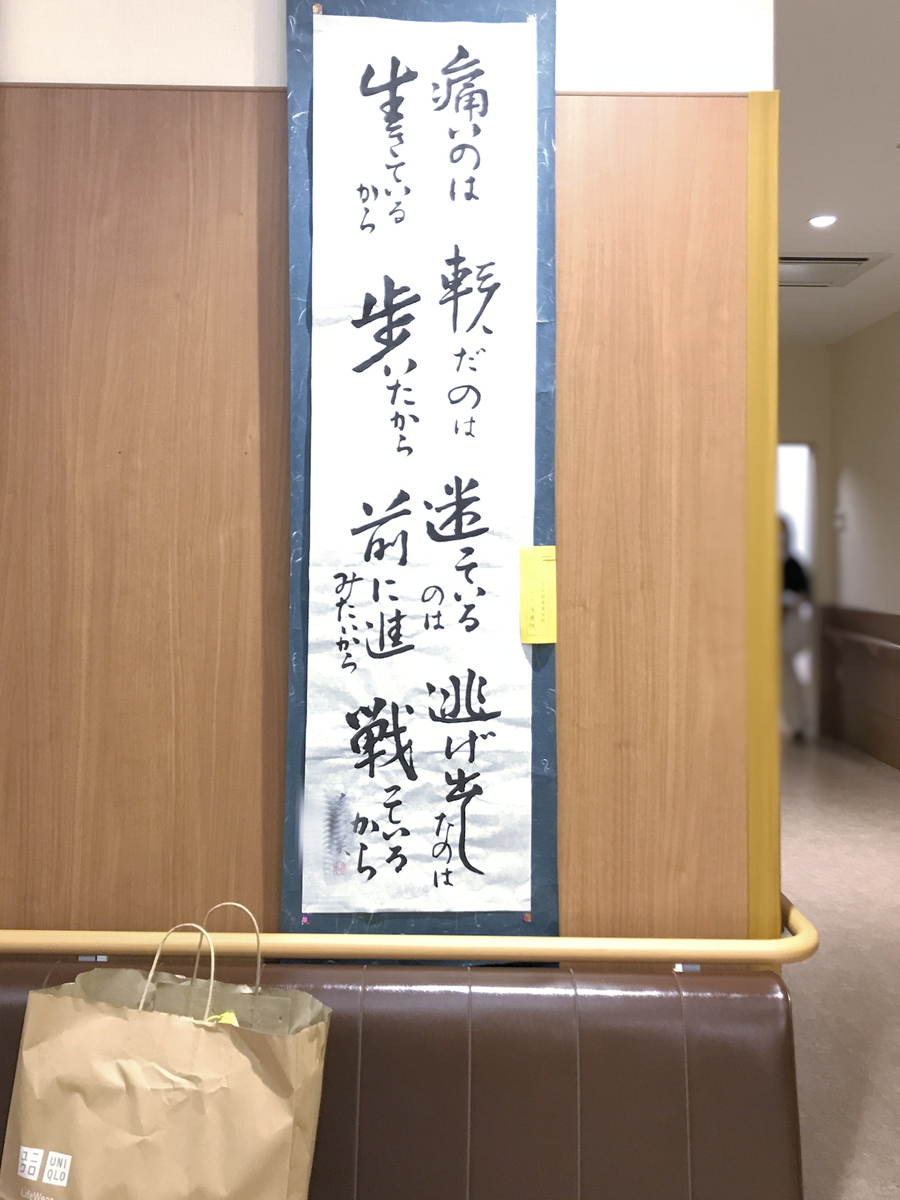 痛いのは
生きている
から
転んだのは
歩いたから
迷っている
のは
前に進
みたいから
逃げ出し
のは
戦っている
から
ユニ
クロ
UNI
QLO